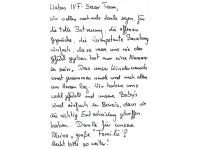 Liebes IVF-Saar Team,
wir wollen nochmals danke sagen, für
die tolle Betreuung, die offenen
Gespräche, die kompetente Beratung
einfach, dass man uns nie das
Gefühl gegeben hat nur eine Nummer
zu sein. Das unser Kinderwunsch
ernst genommen wurde und auch alles
um Ihnen lag. Wir haben uns
wohl gefühlt und unsere Babys
sind einfach der Beweis, dass wir
die richtige Entscheidung getroffen
haben. Danke für unsere
kleine "große" Familie!
Macht bitte so weiter!